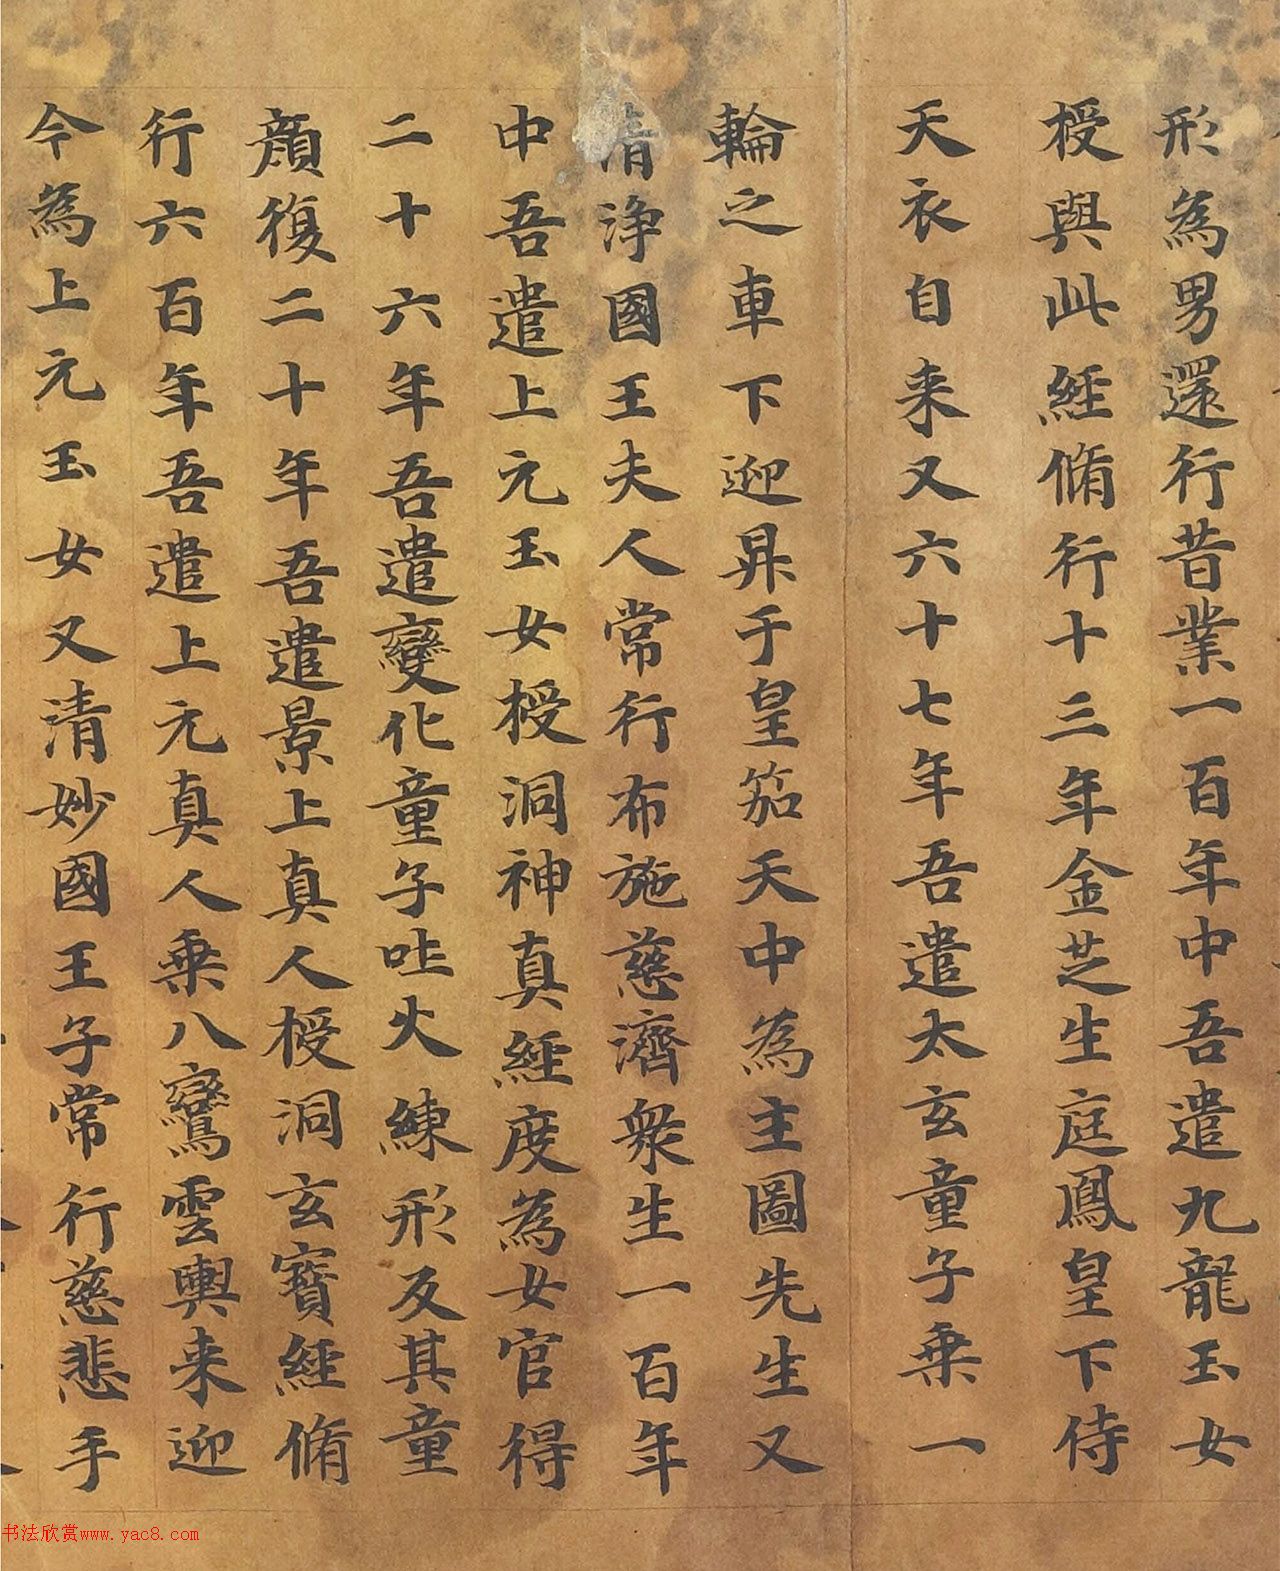 形為男還行昔業一百年中吾遣九龍玉女
授與此經脩行十三年金芝生庭鳳皇下侍
天衣自来又六十七年吾遣太玄童子乗一
輪之車下迎昇于皇笳天中為主圖先生又
清淨國王夫人常行布施慈濟衆生一百年
中吾遣上元玉女授洞神真經度為女官得
二十六年吾遣變化童子吐火練形反其童
顔復二十年吾遣景上真人授洞玄寶經脩
行六百年吾遣上元真人乗八鸞雲輿来迎
今為上元玉女又清妙國王子常行慈悲手
书法欣赏www.yac8.com